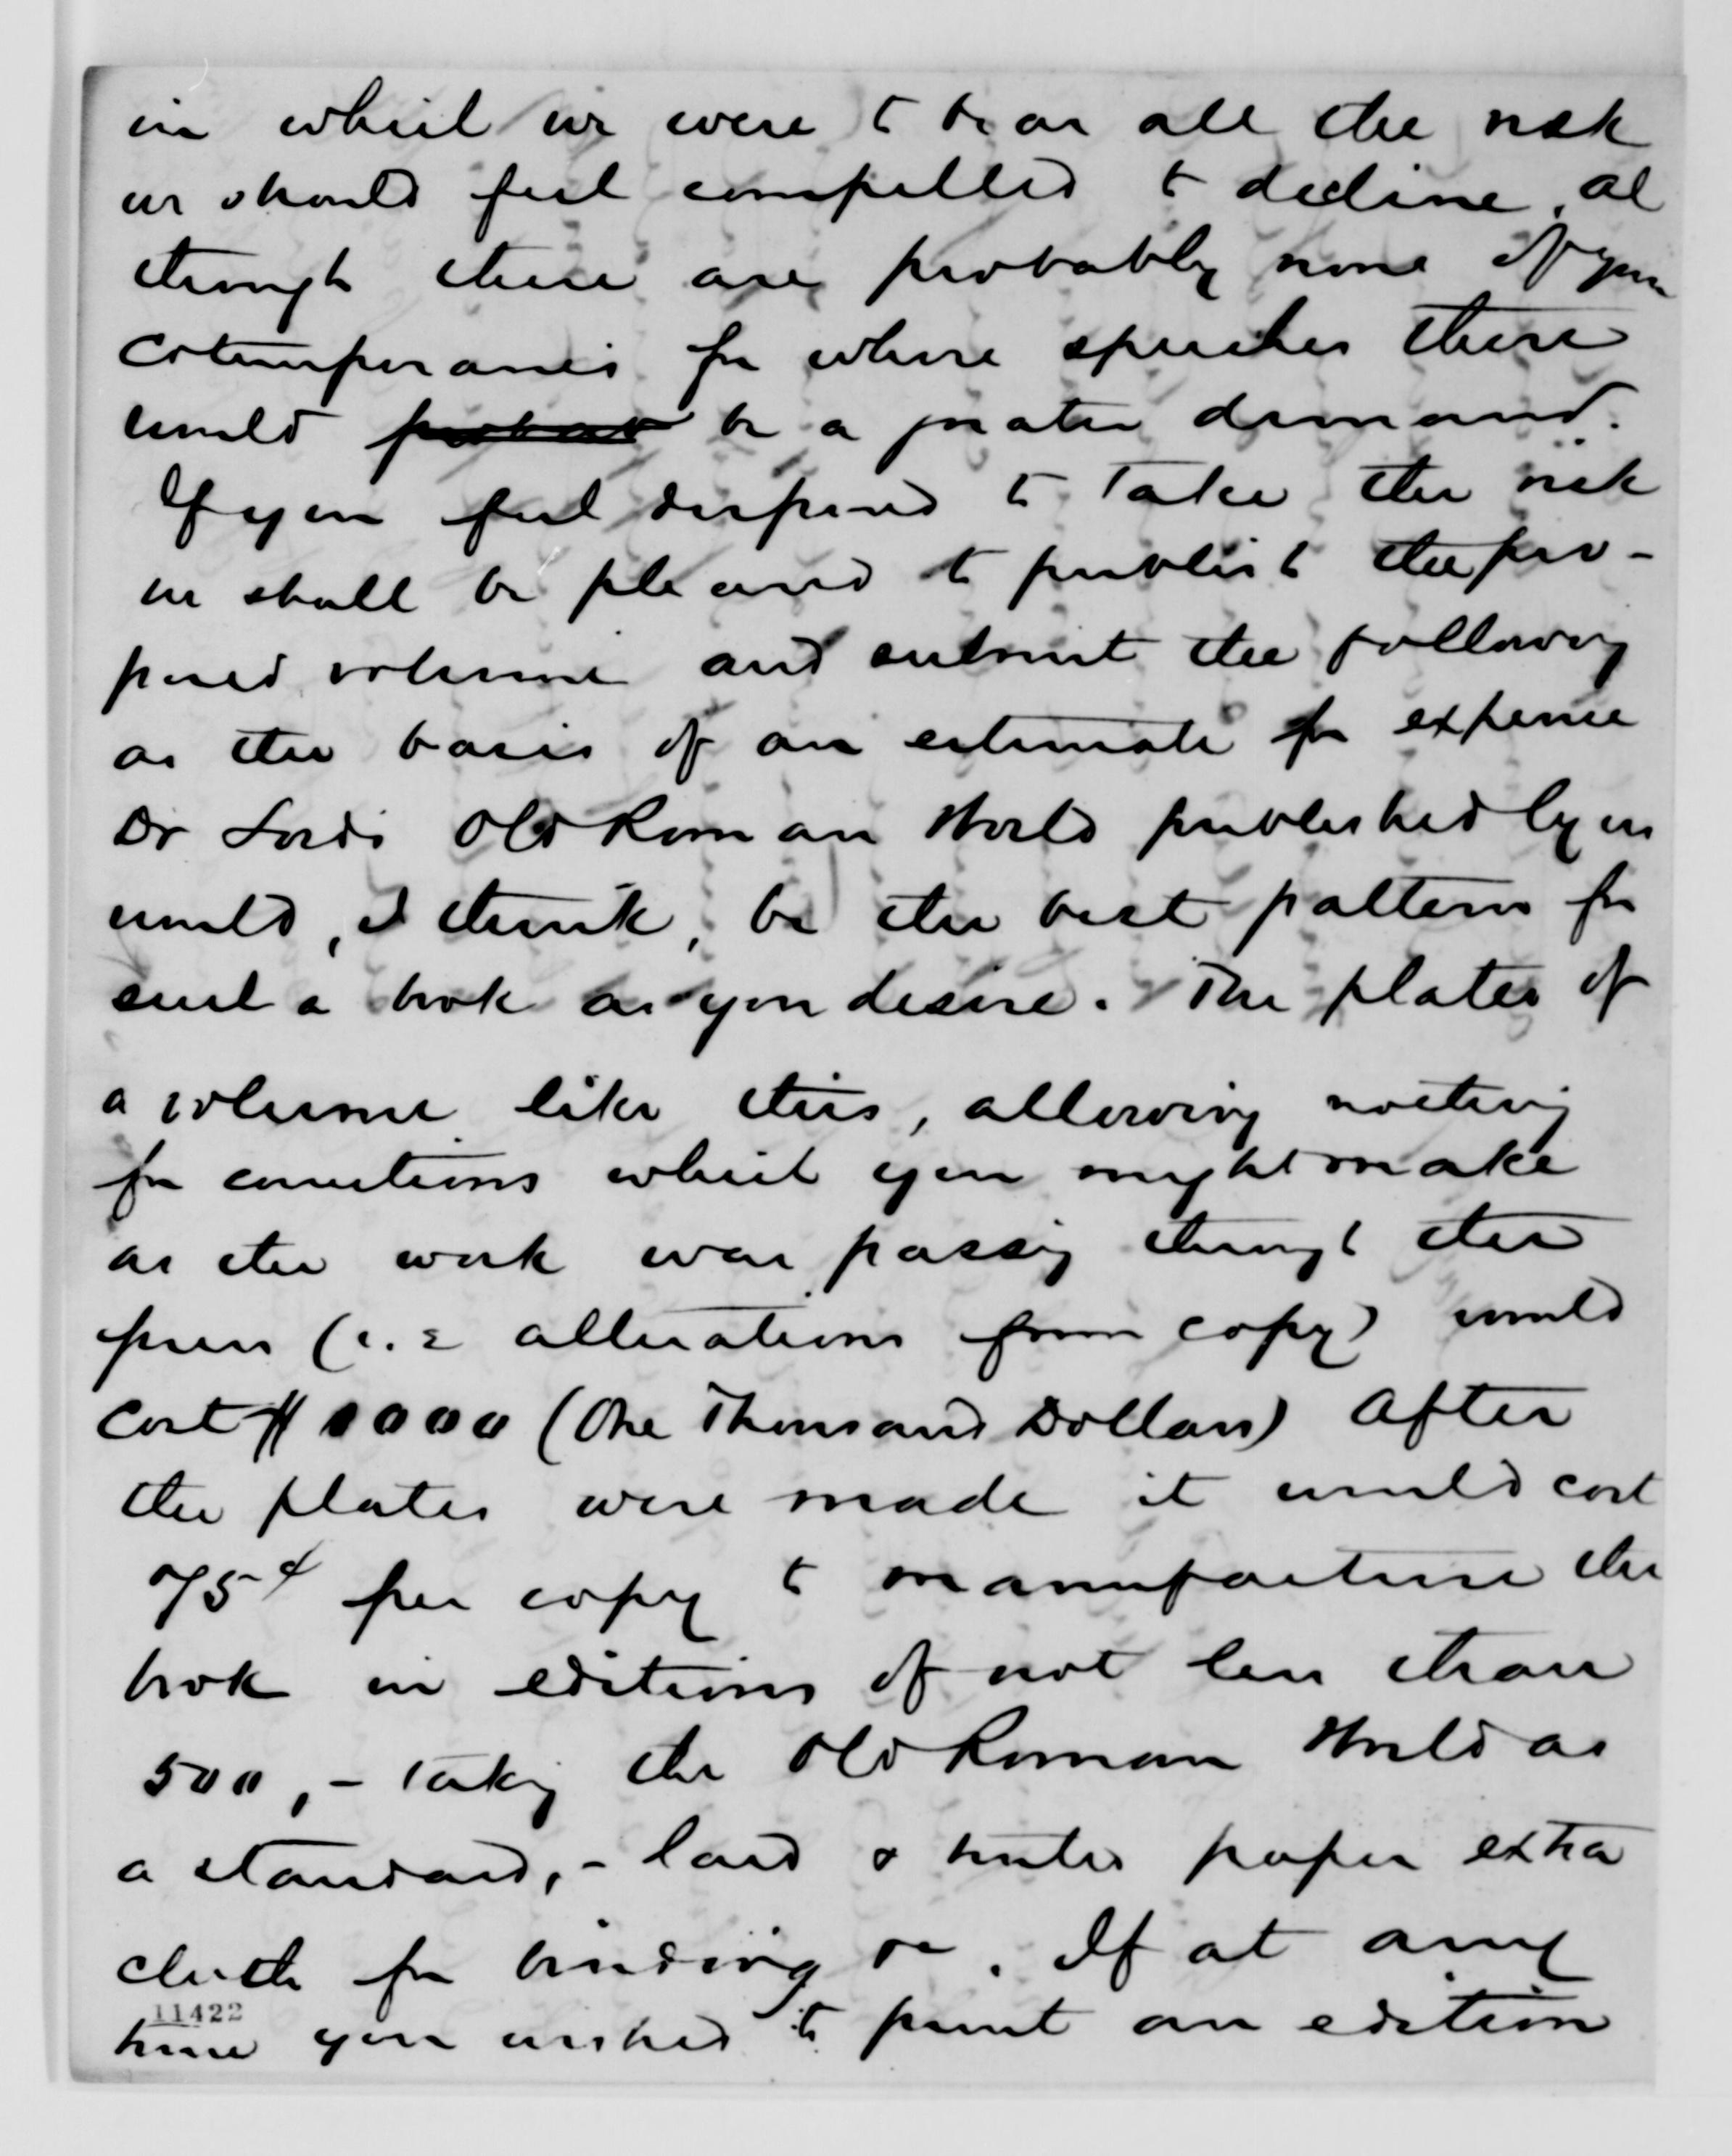 in which we were to bear all the risk
we should feel compelled to decline, al
though there are probably none of your
cotemporaries for whose speeches there
would probab be a greater demand.
If you feel disposed to take the risk
we shall be pleased to publish the pro-
posed volume and submit the following
as the basis of an estimate for expense
Dr Lord's Old Roman World published by us
would, I think, be the best pattern for
such a book as you desire. The plates of
a volume like this, allowing nothing
for corrections which you might make
as the work was passing through the
press (i.e alterations from copy) would
cost $1000 (One Thousand Dollars) After
the plates were made it would cost
75¢ per copy to manufacture the
book in editions of not less than
500, - taking the Old Roman World as
a standard, - laid & tinted paper extra
cloth for binding &c. If at any
11422
time you wished to print an edition